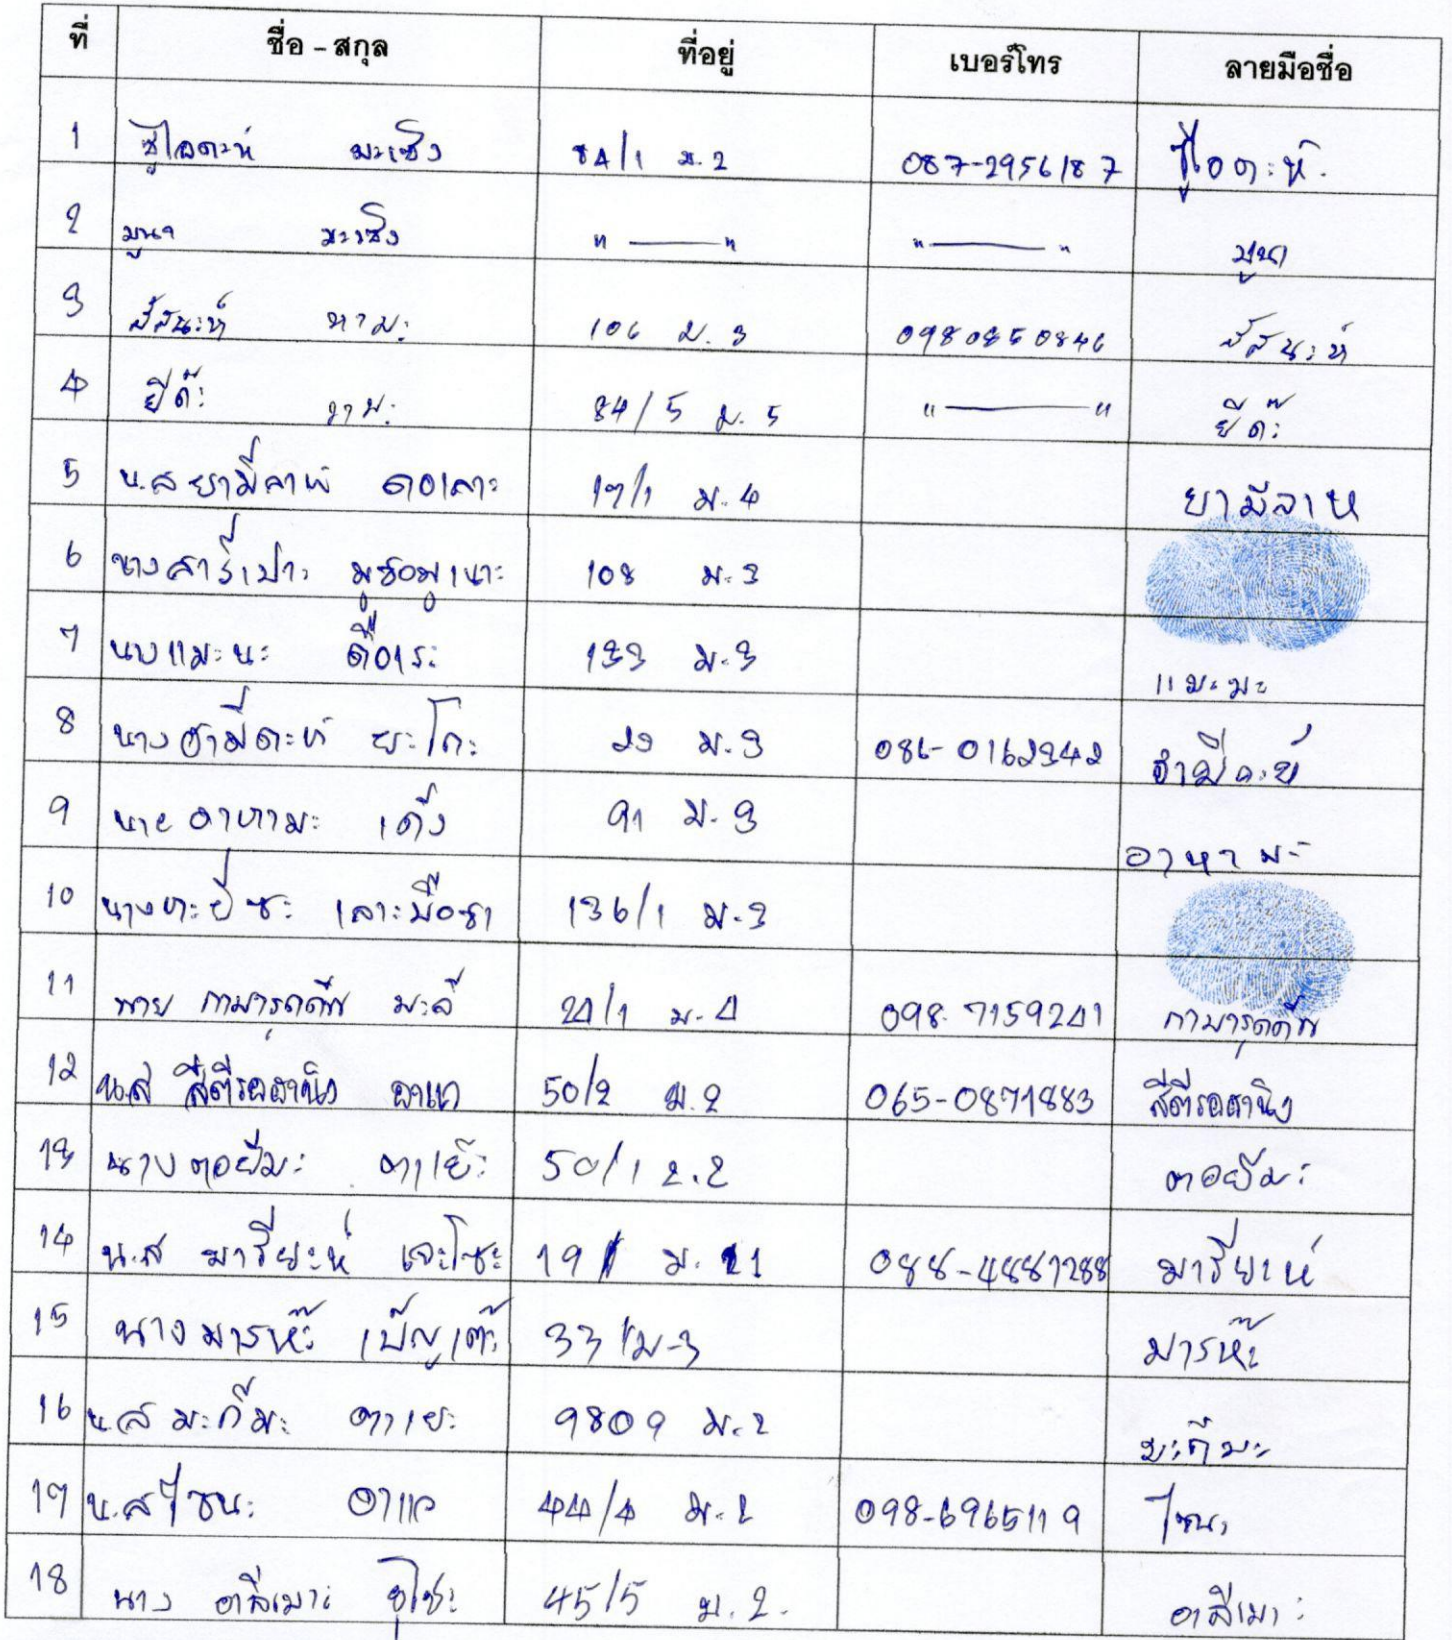 ที่ ชื่อ - สกุล ที่อยู่ เบอร์โทร ลายมือชื่อ
1 ซูไอดะห์ มะเซ็ง 84/1 ม.2 087-2956187 ซูไอดะห์
2 มูนา มะเซ็ง " —— " " —— " มูนา
3 สัสนะห์ หามะ 106 ม.3 สัสนะห์
4 ยีด๊ะ หามะ 84/5 ม.5 " —— " ยีด๊ะ
5 น.ส ยามีลาห์ ดอเลาะ 17/1 ม.4 ยามีลาห
6 นาง 108 ม.3
7 นางแมะนะ ดือเระ 133 ม.3
8 นางฮามีดะห์ ยะโกะ 29 ม.3 086-0162342 ฮามีดะห์
9 นาย อาหามะ เด็ง 91 ม.3 อาหามะ
10 นาง เลาะมือซา 136/1 ม.3
11 นาย กามารุดดีน มะลี 24/1 ม.4 098-7159241 กามารุดดีน
12 น.ส สีตีรอฮานิง อาแว 50/2 ม.2 065-0871883 สีตีรอฮานิง
13 นาง ตอยีมะ ตาเย๊ะ 50/1 ม.2 ตอยีมะ
14 น.ส มารียะห์ เจะโซะ 19 ม. 1 มารียะห์
15 นาง มารห๊ะ 33 ม-3 มารห๊ะ
16 น.ส มะกีมะ ตาเยะ 9809 ม.2 มะกีมะ
17 น.ส ไซนะ อาแว 44/4 ม.2 098-6965119 ไซนะ
18 นาง อาสีเมาะ 45/5 ม.2. อาสีเมาะ